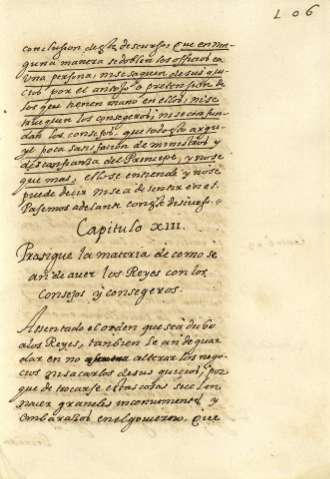 106
conclusion deste discurso que en nin
guna manera se doblen los officios en
una persona, ni se saquen de sus qui
cios por el antojo o pretension de
los que tienen mano en ellos, ni se
truequen los consegeros, ni se confun
dan los consejos, que todo esto argu
ye poca satisfacion de ministros y
desconfianza del Principe, y no se
que mas, ello se entiende y no se
puede decir ni se a de sentir en el.
Pasemos adelante con este discurso.
Capitulo XIII.
Prosigue la materia de como se
an de aver los Reyes con los
Consejos y consegeros.
Asentado el orden que se a dicho
a los Reyes, tambien se an de guar
dar en no alterar los nego
cios ni sacarlos de sus quicios, por
que de trocarse estas cosas suelen
nacer grandes inconvenientes y
embarazos en el govierno. Que